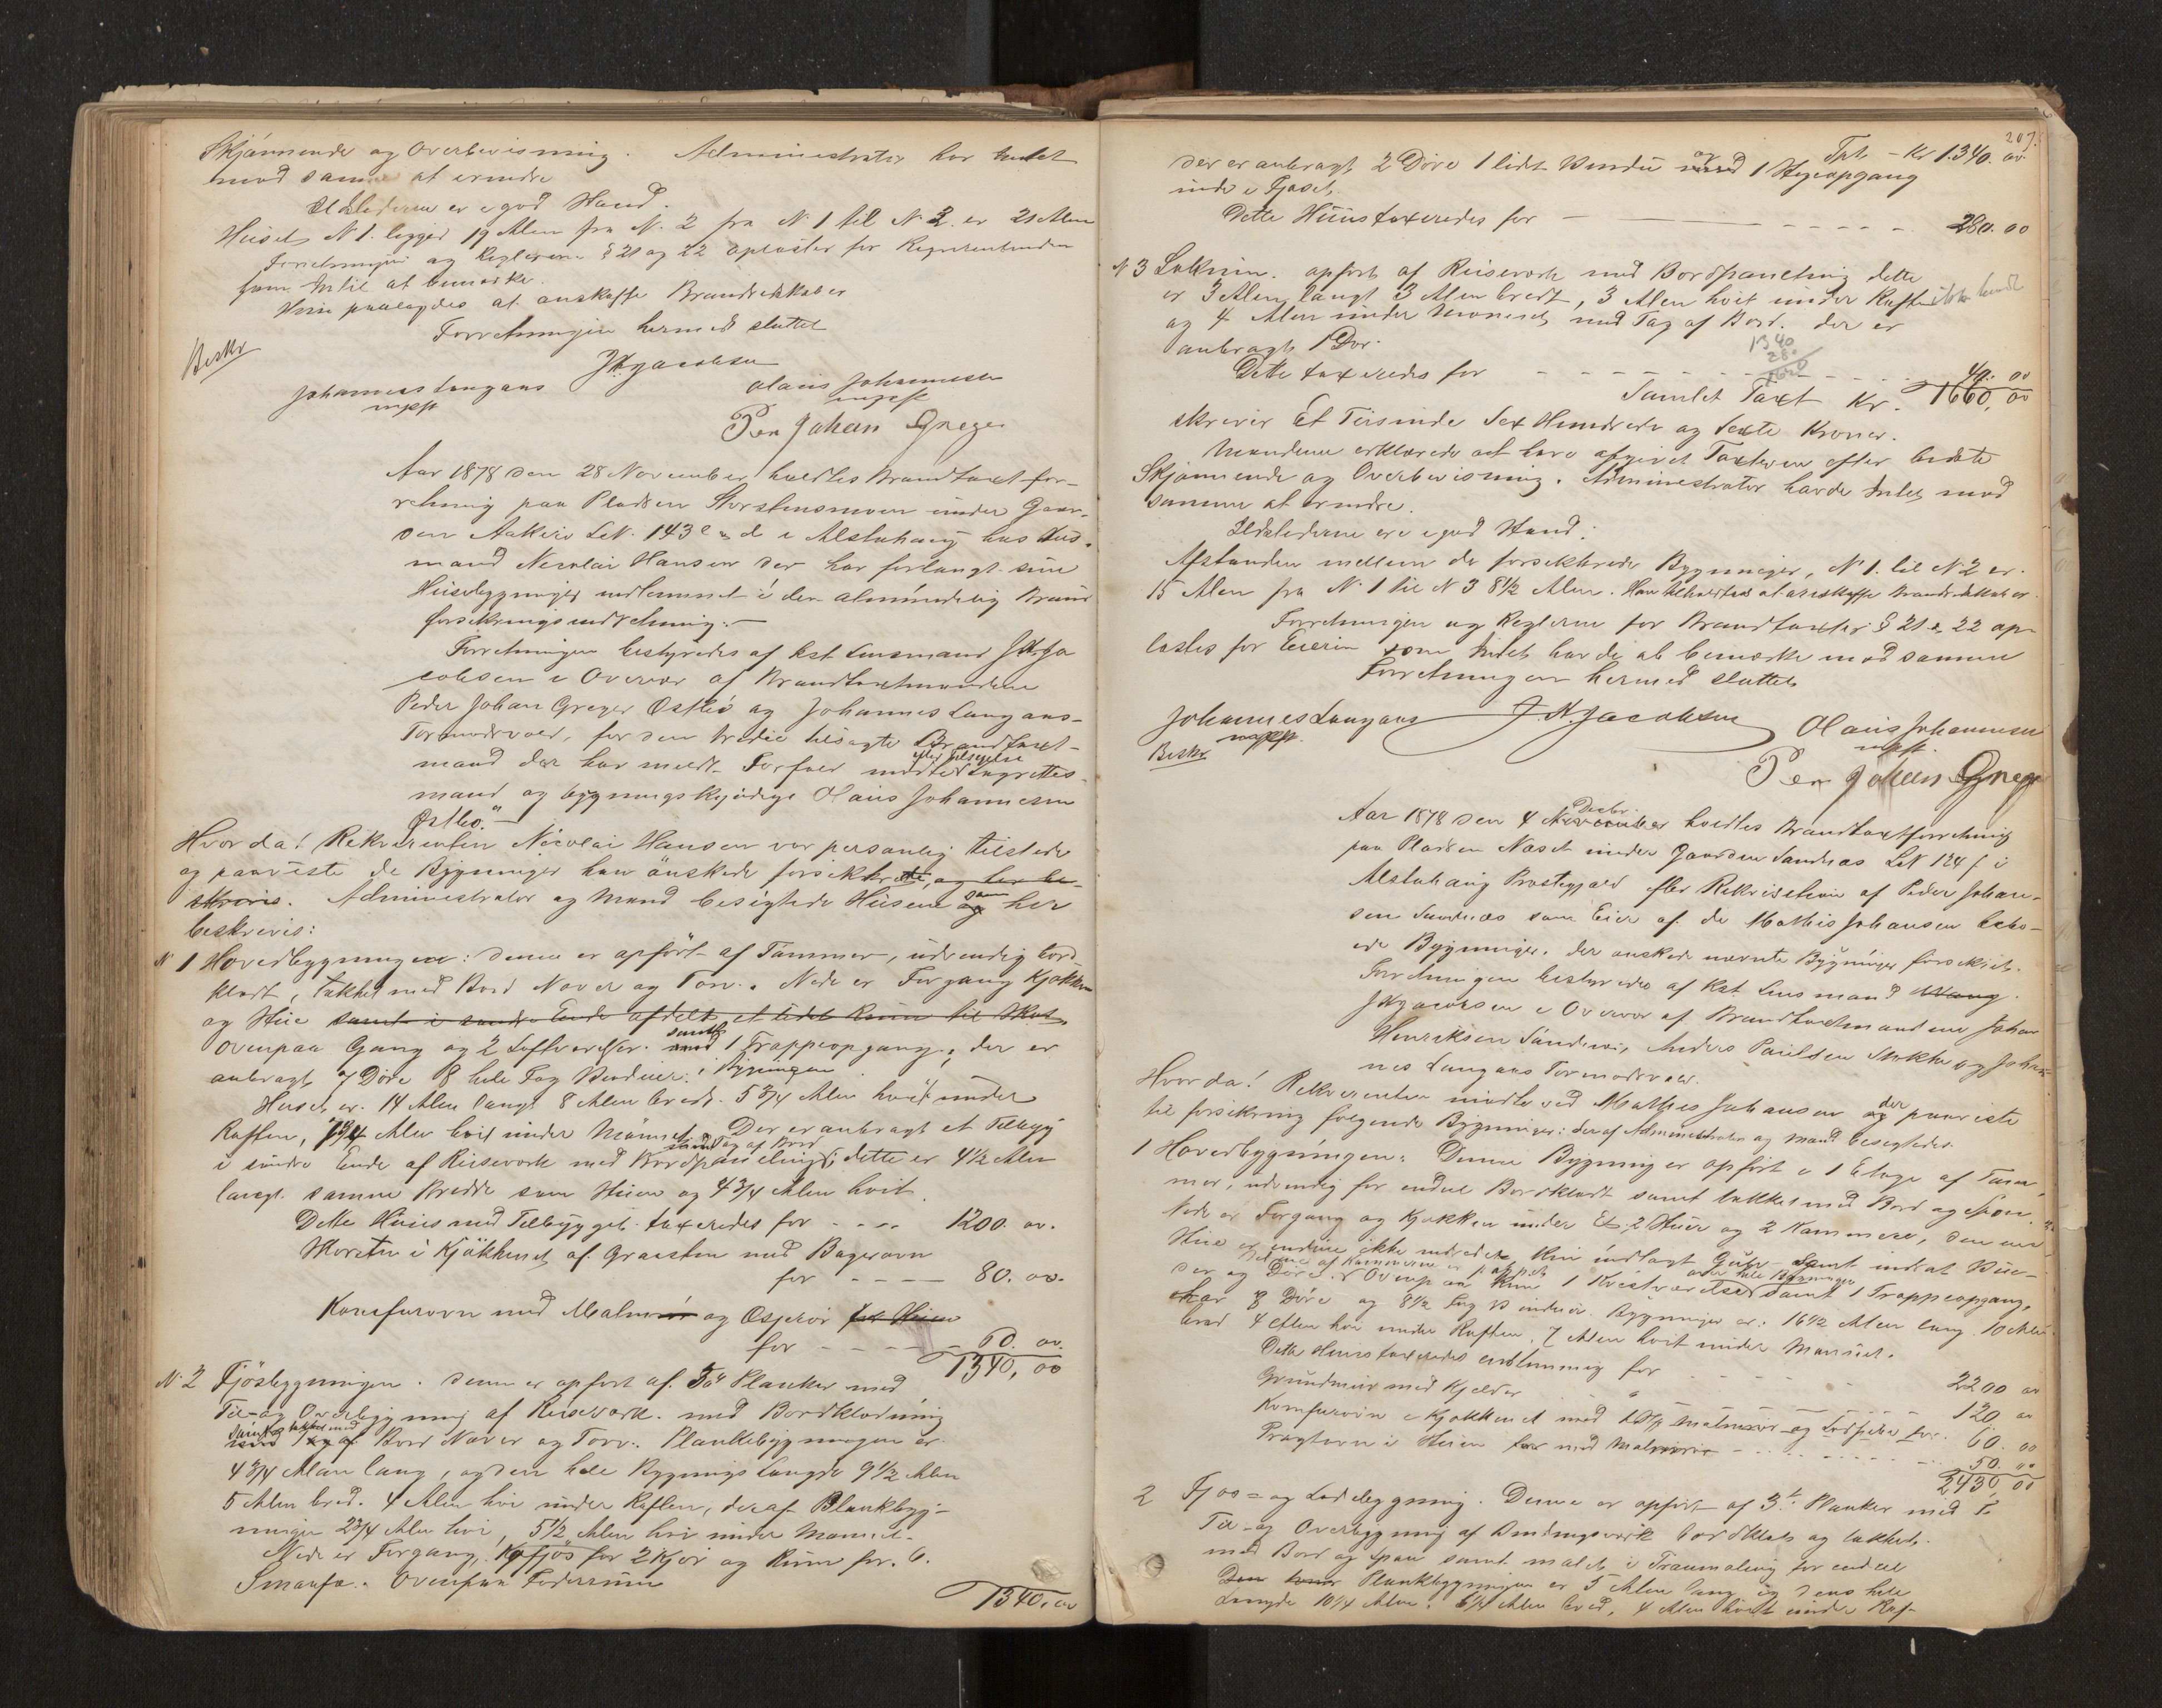 Skjønnende og Overbevisning. Administrator har Intet
mod samme at erindre
Ildstederne er i god Stand.
Huset N 1. ligger 19 Alen fra N. 2 fra N. 1 til N 3. er 21 Alen
Forretningen og Reglerne § 21 og 22 oplæstes for Rekvirenten
som Intet at bemærke.
Han paalagdes at anskaffe Brandredskaber
Forretningen hermed sluttet
Beskr
J N Jacobsen
Johannes Langaas
mpst
Olaus Johannesen
mpst
Per Johan Greger
Aar 1878 den 28 November holdtes Brandtaxtfor-
retning paa Pladsen Storstensmoen under Gaar-
den LN. 143 i Alstahaug hos Hus-
mand Nicolai Hansen der har forlangt sine
Huusbygninger indlemmet i den almindelig Brand
forsikringsindretning.—
Forretningen bestyredes af Kst Lensmand J N Ja
cobsen i Overvær af Brandtaxtmændene
Peder Johan Greger Østbø og Johannes Langaas-
Tormodsvold, for den tredie tilsagte Brandtaxt-
mand der har meldt Forfald mødte efter Tilsigelse Lagrettes-
mand og bygningskyndige Olaus Johannesen
Østbø.—
Hvor da! Rekvirenten Nicolai Hansen var personlig tilstede
og paaviste de Bygninger han ønskede forsikkrede, og her be-
skrives. Administrator og Mænd besigtede Husene som og her
beskrives:
N 1 Hovedbygningen: denne er opført af Tømmer, udvendig bord-
klædt, tækket med Bord Næver og Torv. Nede er Forgang Kjøkken
og Stue samt i søndre Ende afdelt et lidet Rum til Mad
Ovenpaa Gang og 2 Loftværelser. samt med 1 Trappeopgang, der er
anbragt 7 Døre 8 hele Fag Vinduer. i Bygningen
Huset er. 14 Alen langt 8 Alen bredt. 5 3/4 Alen høit under
Raften, 7 3/4 Alen høit under Mønnet. Der er anbragt et Tilbyg
i søndre Ende af Reisværk med Bordpaneling, med Tag af Bord dette er 4 1/2 Alen
langt. samme Bredde som Huset og 4 3/4 Alen høit.
Dette Huus med Tilbygget taxeredes for - - - 1200. 00.
Skorsten i Kjøkkenet af Graasten med Bagerovn
for - - - - 80. 00.
Komfurovn med Malmrør og Osprør for Huset
for - - - - 60. 00.
1340,00
N. 2 Fjøsbygningen. denne er opført af 3" Planker med
Til- og Overbygning af Reisværk. med Bordklædning
samt tækket med med Tag af Bord Næver og Torv. Plankebygningen er
4 3/4 Alen lang, og den hele Bygnings Længde 9 1/2 Alen
5 Alen bred. 4 Alen høi under Raften, deraf Plankbyg-
ningen 2 3/4 Alen høi, 5 1/2 Alen høi under Mønnet.
Nede er Forgang, Kofjøs for 2 Kjør og Rum for. 6.
Smaafæ. Ovenpaa Foderrum
1340,00
207.
Tpt - Kr 1340. 00
der er anbragt 2 Døre 1 lidet Vindu og med 1 Stigeopgang
inde i Fjøset.
Dette Huus taxeredes for — - - - - 280. 00
N 3 Lokum. opført af Reisværk med Bordpaneling dette
er 3 Alen langt 3 Alen bredt, 3 Alen høit under Raften
og 4 Alen under Mønnet med Tag af Bord. der er
anbragt 1 Dør.
1340
280
1620
Dette taxeredes for - - - - - - - 40. 00
Samlet Taxt Kr. 1660,00
skriver Et Tusinde Sex Hundrede og Sexti Kroner.
Mændene erklærede at have afgivet Taxten efter bedste
Skjønnende og Overbevisning. Administrator havde Intet mod
samme at erindre.
Ildstederne ere i god Stand.
Afstanden mellem de forsikkrede Bygninger, N 1. til N 2 er.
15 Alen fra N. 1 til N 3 8 1/2 Alen. Han tilholdtes at anskaffe Brandredskaber
Forretningen og Reglerne for Brandtaxter § 21 & 22 op-
læstes for Eieren som Intet havde at bemærke mod samme
Forretningen hermed sluttet
Johannes Langaas
mpst.
J. N. Jacobsen
Olaus Johannesen
mpst.
Beskr
Per Johan Greger
Aar 1878 den 4 Decbr. November holdtes Brandtaxtforretning
paa Pladsen Næset under Gaarden Sandnæs LN 124 f i
Alstahaug Præstegjæld efter Rekvisition af Peder Johan-
sen Sandnæs som Eier af de Mathis Johansen bebo-
ede Bygninger. der ønskede nævnte Bygninger forsikret.
Forretningen bestyredes af Kst. Lensmand
J N Jacobsen i Overvær af Brandtaxtmændene Johan
Henriksen Sandnæs, Anders Paulsen og Johan-
nes Langaas Tormodsvold.
Hvor da! Rekvirenten mødte ved Mathis Johansen der og paaviste
til forsikring følgende Bygninger: der af Administrator og Mænd besigtedes.
1 Hovedbygningen. Denne Bygning er opført i 1 Etage af Tøm-
mer, udvendig for endeel Bordklædt samt tækket med Bord og Spon.
Nede er Forgang og Kjøkken under Et, 2 Stuer og 2 Kammere, den ene
Stue er endnu ikke indredet, kun indlagt Gulv samt indsat Vindu-
der og Døre. et af Kammerne er Ovenpaa kun 1 Kvistværelse samt 1 Trappeopgang,
har 8 Døre og 8 1/2 Fag Vinduer. over hele Bygningen Bygningen er. 16 1/2 Alen lang 10 Alen
bred 4 Alen høi under Raften. 7 Alen høit under Mønnet.
Dette Huus taxeredes for - - - - - 2200 00
Grundmuur med Kjelder - - - - - 120 00
Komfurovn i Kjøkkenet med Malmrør og for. 60. 00
Pragtovn i Stuen for med Malmrør - - - - - 50. 00
2430,00
2 Fjøs- og Ladebygning. Denne er opført af 3" Planker med
Til- og Overbygning af Bindingsværk bordklædt og tækket.
med Bord og Spon samt malet i Tranmaling for endeel
Den Plankbygningen er 5 Alen lang og dens hele
Længde 10 1/4 Alen. 6 1/4 Alen bred, 4 Alen høit under Raf-